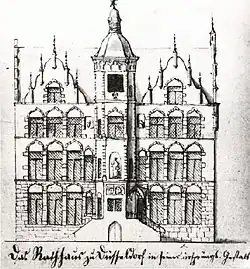 Das Rathhaus zu Düsseldorf in seiner ursprüngl. Gestalt